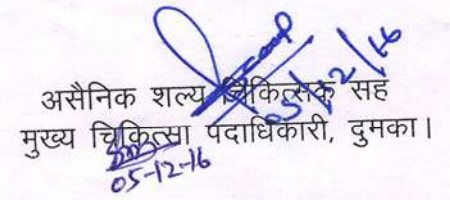 05/12/16
असैनिक शल्य चिकित्सक सह
मुख्य चिकित्सा पदाधिकारी, दुमका।
05-12-16